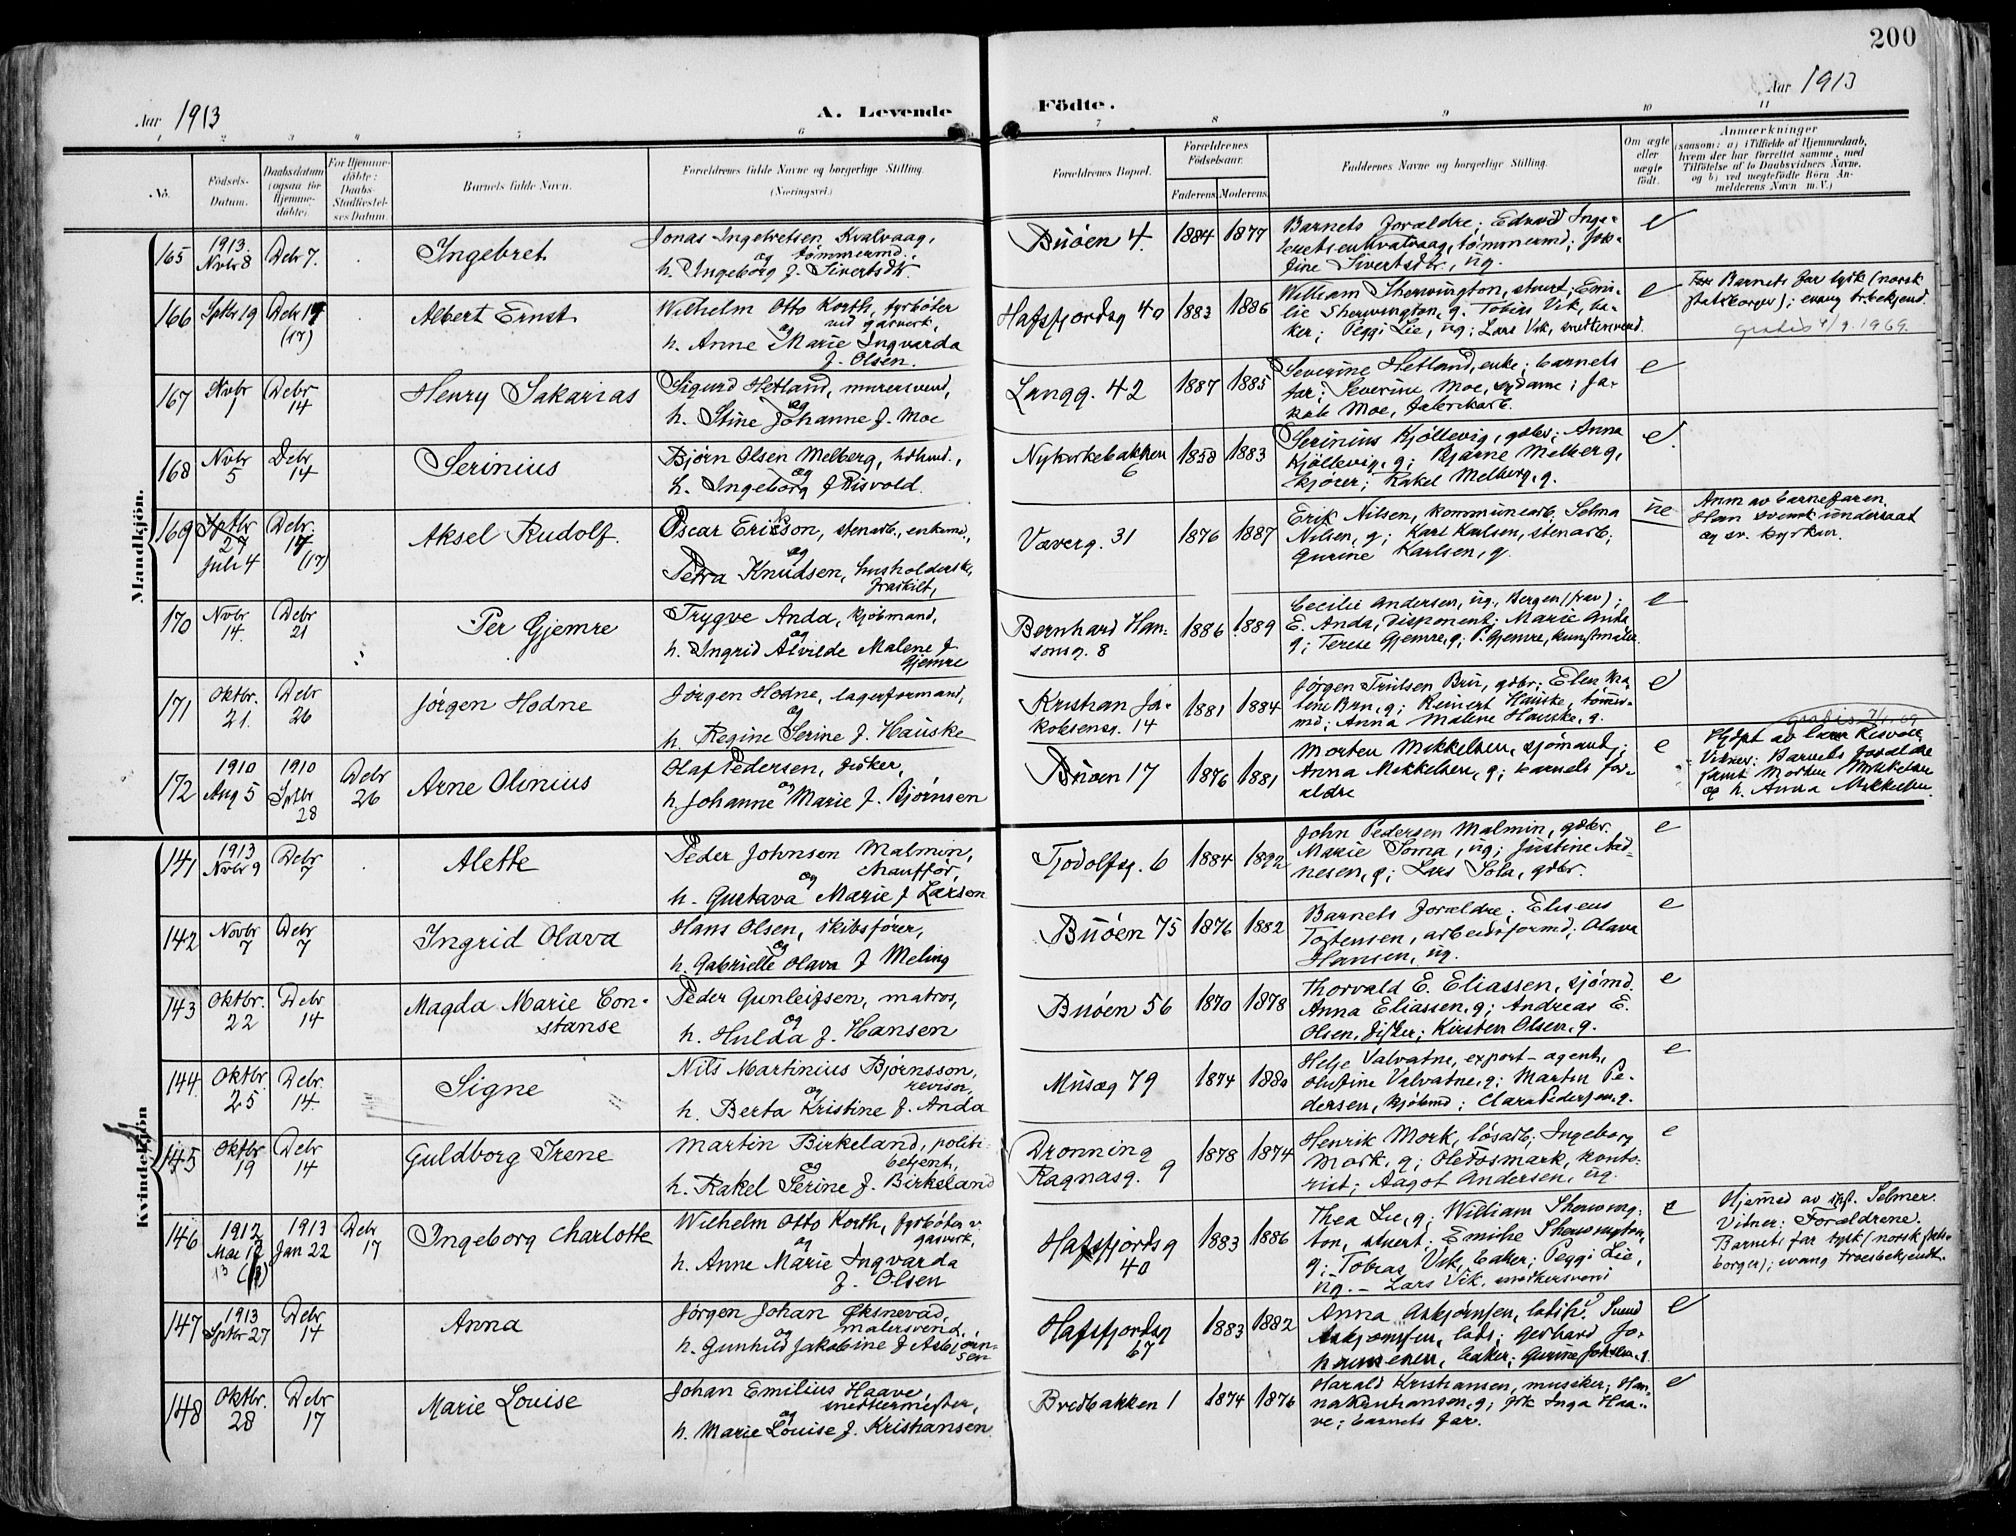 200
Aar 1913
A. Levende Födte.
Aar 1913
1 2 3 4 5 6 7 8 9 10 11
No.
Födsels-Datum.
Daabsdatum (ogsaa for Hjemmedöbte).
For Hjemmedöbte: Daabs-Stadfæstelses Datum.
Barnets fulde Navn.
Forældrenes fulde Navne og borgerlige Stilling. (Næringsvei.)
Forældrenes Bopæl.
Forældrenes Födselsaar. Faderens. Moderens.
Faddernes Navne og borgerlige Stilling.
Om ægte eller uægte födt.
Anmærkninger (saasom: a) i Tilfælde af Hjemmedaab, hvem der har forrettet samme, med Tilföielse af to Daabsvidners Navne, og b) ved uægtefödte Börn Anmelderens Navn m. V.)
Mandkjön.
165 1913. Novbr 8 Debr 7. Ingebret
Jonas Ingebretsen Kvalvaag, tømmermd., og
h. Ingeborg f. Sivertsdtr
Buøen 4. 1884 1877
Barnets Forældre; Edvard Inge-
bretsen Kvalvaag, tømmermd; Jose-
fine Sivertsdtr., ug. e
166 Sptbr 19 Debr 14 (17) Albert Ernst
Wilhelm Otto Korth, fyrbøter
ved gasverk, og
h. Anne Marie Ingvarda
f. Olsen.
Hafsfjordsg 40 1883 1886
William Sherwington, stuert; Emi-
lie Sherwington, g. Tobias Vik, ba-
ker; Peggi Lie, ug; Lars Vik, smedsvend. e
Barnets far tysk (norsk
statsborger); evang. trosbekjend.
gratis 4/9. 1969.
167 Novbr 1 Debr 14 Henry Sakarias
Sigurd Hetland, murersvend, og
h. Stine Johanne f. Moe
Langg. 42 1887 1885
Severine Hetland, enke; barnets
far; Severine Moe, sydame; Ja-
kob Moe, fabrikarb. e
168 Novbr 5 Debr 14 Serinius
Bjørn Olsen Melberg, og
h. Ingeborg f Risvold.
Nykirkebakken 6 1850 1883
Serinius Kjøllevig, gdbr; Anna
Kjøllevig, g; Bjarne Melberg,
kjører; Rakel Melberg, g. e
169 Sptbr 27 Juli 4 Debr 14 (17) Aksel Rudolf.
Oscar Ericson, stenarb., enkemd., og
Petra Knudsen, husholderske,
fraskilt,
Væverg. 31 1876 1887
Erik Nilsen, kommunearb. Selma
Nilsen, g; Karl Karlsen, stenarb;
Gurine Karlsen, g. ue
Anm av barnefaren.
Han svensk undersaat
og sv. kyrkan.
170 Novbr 14. Debr 21 Per Gjemre
Trygve Anda, kjøbmand, og
h. Ingrid Alvilde Malene f.
Gjemre
Bernhard Han-
sonsg. 8 1886 1889
Cecilie Andersen, ug., Bergen (frav);
E. Anda, disponent; Marie Anda,
g; Terese Gjemre, g; P. Gjemre, kunstmaler e
171 Oktbr. 21. Debr 26 Jørgen Hodne
Jørgen Hodne, lagerformand, og
h. Regine Serine f. Hauske
Kristian Ja-
kobsensg. 14 1881 1884
Jørgen Truelsen Bru, gdbr; Elen Ma-
line Bru, g; Reinert Hauske, tømmer-
md; Anna Malene Hauske, g. e
172 1910 Aug 5 1910 Sptbr 28 Debr 26 Arne Olinius
Olaf Pedersen, fisker, og
h. Johanne Marie f. Bjørnsen
Buøen 17 1876 1881
Morten Mikkelsen, sjømand;
Anna Mikkelsen, g; barnets for-
ældre e
gratis 7/1. 69
Hjdpt av Lars Risvoll.
Vitner: Barnets forældre
samt Morten Mikkelsen
og h. Anna Mikkelsen.
Kvindekjön
141 1913 Novbr 9 Debr 7 Alette
Peder Johnsen Malmin,
chauffør, og
h. Gustava Marie f Larsen
Tjodolfsg. 6 1884 1892
John Pedersen Malmin, gdbr.
Marie Soma, ug; Justine Aad-
nesen, g; Lars Sola, gdbr. e
142 Novbr 7 Debr 7 Ingrid Olava
Hans Olsen, skibsfører, og
h. Gabrielle Olava f Meling
Buøen 75 1876 1882
Barnets Forældre; Eliseus
Tostensen, arbeidsformd; Olava
Hansen, ug. e
143 Oktbr. 22 Debr 14 Magda Marie Con-
stanse
Peder Gunleifsen, matros, og
h. Hulda f. Hansen
Buøen 56 1870 1878
Thorvald E. Eliassen, sjømd.
Anna Eliassen, g; Andreas E.
Olsen, fisker; Kirsten Olsen, g. e
144. Oktbr 25 Debr. 14. Signe
Nils Martinius Bjørnsson,
revisor, og
h. Berta Kristine f. Anda
Musæg 79 1874 1880
Helje Valvatne, export-agent,
Olufine Valvatne, g; Martin Pe-
dersen, kjøbmd; Clara Pedersen, g. e
145 Oktbr 19 Debr 14 Guldborg Irene
Martin Birkeland, politi-
betjent, og
h. Rakel Serine f. Birkeland
Dronning
Ragnasg. 9 1878 1874
Henrik Mork, løsarb; Ingeborg
Mork, g; Ole Fosmark, konto-
rist; Aagot Andersen, ug. e
146 1912 Mai 12 13 1913 Jan 22 Debr 17 Ingeborg Charlotte
Wilhelm Otto Korth, fyrbøter v.
gasverk, og
h. Anne Marie Ingvarda
f. Olsen
Hafsfjordsg
40 1883 1886
Thea Lie, g; William Sherwing-
ton, stuert; Emilie Sherwington,
g; Tobias Vik, baker; Peggi Lie,
ug. – Lars Vik, smedsvend e
Hjemed av spt. Selmer.
Vitner: Forældrene.
Barnets far tysk (norsk stats-
borger); evang troesbekjendt.
147 1913 Sptbr 27 Debr 14 Anna
Jørgen Johan Øksnevad,
malersvend, og
h. Gunhild Jakobine f Asbjørn-
sen
Hafsfjordsg
67 1883 1882
Anna Asbjørnsen, Svend
Asbjørnsen, lods; Gerhard Jo-
hannesen, baker; Gurine Johnsen, g. e
148 Oktbr. 28 Debr 17 Marie Louise
Johan Emilius Haave,
snedkermester, og
h. Marie Louise f. Kristiansen
Bredbakken 1 1874 1876
Harald Kristiansen, musiker; Han-
na Kristiansen, g; frk Inga Haa-
ve; barnets far. e